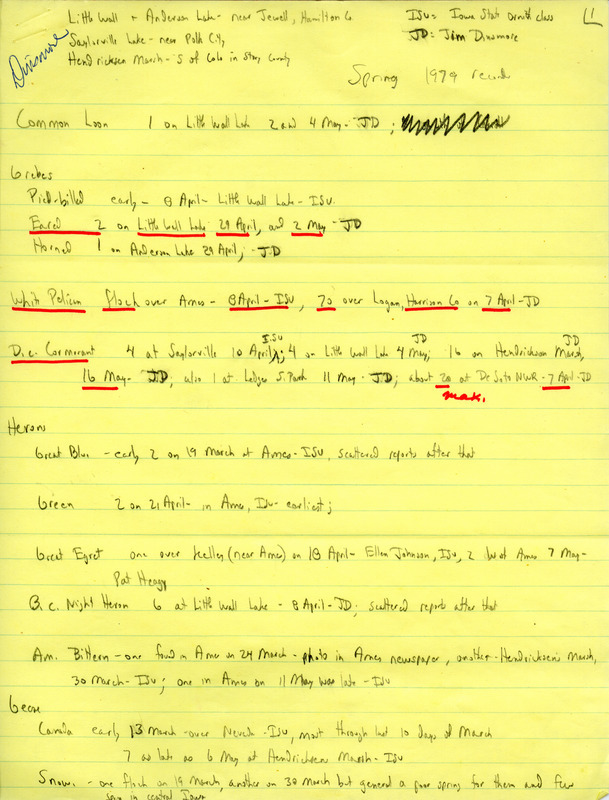 Little Wall + Anderson Lake - near Jewell, Hamilton Co. ISU = Iowa State Ornith class 1
Saylorville Lake - near Polk City JD = Jim Dinsmore
Hendricksen Marsh - S of Colo in Story County
Dinsmore
Spring 1979 records
Common Loon 1 on Little Wall Lake 2 and 4 May - JD ;
Grebes
Pied-billed early - 8 April - Little Wall Lake - ISU.
Eared 2 on Little Wall Lake 29 April, and 2 May - JD
Horned 1 on Anderson Lake 29 April; - JD
White Pelican flock over Ames - 8 April - ISU, 70 over Logan, Harrison Co on 7 April - JD
ISU JD JD
D.c. Cormorant 4 at Saylorville 10 April; 4 on Little Wall Lake 4 May; 16 on Hendrickson Marsh,
16 May - JD; also 1 at Ledges S. Park 11 May - JD; about 20 at De Soto NWR - 7 April - JD
max.
Herons
Great Blue - early 2 on 19 March at Ames - ISU, scattered reports after that
Green 2 on 21 April - in Ames, ISU - earliest;
Great Egret one over Kelley (near Ames) on 18 April - Ellen Johnson, ISU, 2 W of Ames 7 May -
Pat Heagy
B.c. Night Heron 6 at Little Wall Lake - 8 April - JD; scattered reports after that
Am. Bittern - one found in Ames on 24 March - photo in Ames newspaper, another - Hendricksen's Marsh,
30 March - ISU; one in Ames on 11 May was late - ISU
Geese
Canada early 13 March - over Nevada - ISU, most through last 10 days of March
7 as late as 6 May at Hendrickson Marsh - ISU
Snow. - one flock on 19 March, another on 30 March but general a poor spring for them and few
seen in central Iowa